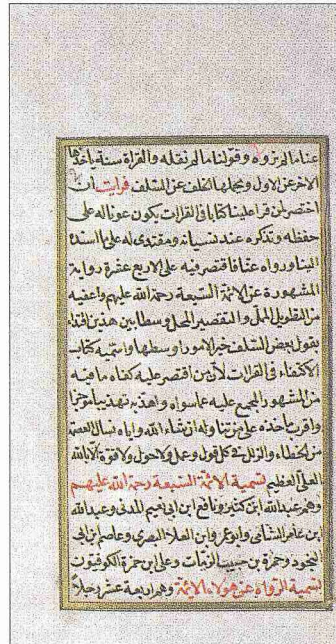 عنا ما لم نروه وقولنا ما لم نقله والقراة سنة ياخذها
الاخر عن الاول ويحملها الخلف عن السلف فرايت ان
اختصر لمن قرا علينا كتابا في القراات يكون عونا له على
حفظه وتذكره عند نسيانه ومقتدى له على ما اسنده
الينا ورواه عنا فاقتصر فيه على الاربع عشرة رواية
المشهورة عن الائمة السبعة رحمة الله عليهم واعفيه
من التطويل الممل والتقصير المخل وسطا بين هذين اقتداء
بقول بعض السلف خير الامور اوسطها واسميه كتاب
الاكتفاء في القراات لان من اقتصر عليه كفاه ما فيه
من المشهور المجمع عليه عما سواه واهذبه تهذيبا موجزا
واقرب ماخذه على من تناوله ان شاء الله واياه نسال العصمة
من الخطاء والزلل في كل قول وعمل ولا حول ولا قوة الا بالله
العلي العظيم تسمية الائمة السبعة رحمة الله عليهم
وهم عبد الله ابن كثير ونافع ابن ابي نعيم المدني وعبد الله
ابن عامر الشامي وابو عمرو ابن العلاء البصري وعاصم بن ابي
النجود وحمزة بن حبيب الزيات وعلي بن حمزة الكوفيون
تسمية الرواه عن هولاء الائمة وهم اربعة عشر رجلا